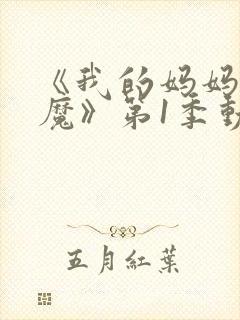 《我的妈妈
魔》第1季動
五月紅葉